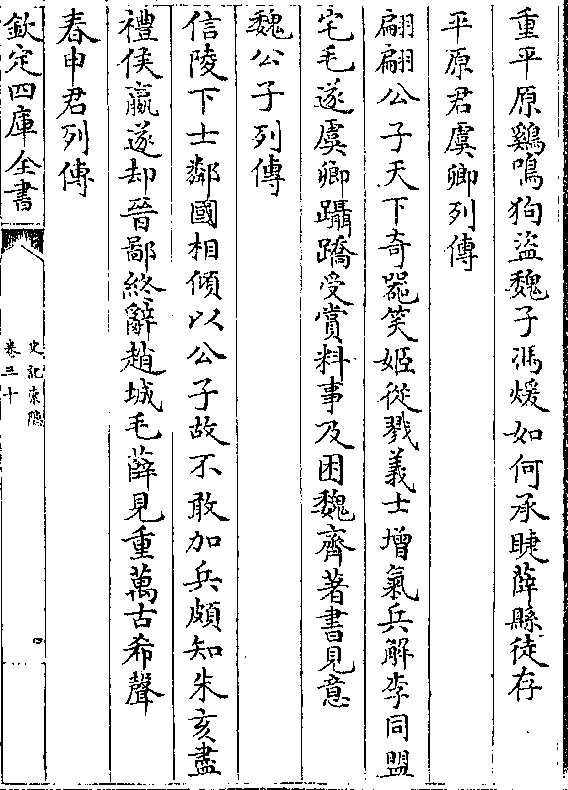 重平原鷄鳴狗盜魏子馮煖如何承睫薛縣徒存
平原君虞卿列傳
翩翩公子天下奇器笑姬從戮義士增氣兵解李同盟
定毛遂虞卿躡蹻受賞料事及困魏齊著書見意
魏公子列傳
信陵下士鄰國相傾以公子故不敢加兵頗知朱亥盡
禮侯嬴遂却晉鄙終辭趙城毛薛見重萬古希聲
春申君列傳
欽定四庫全書
史記索隱
卷三十